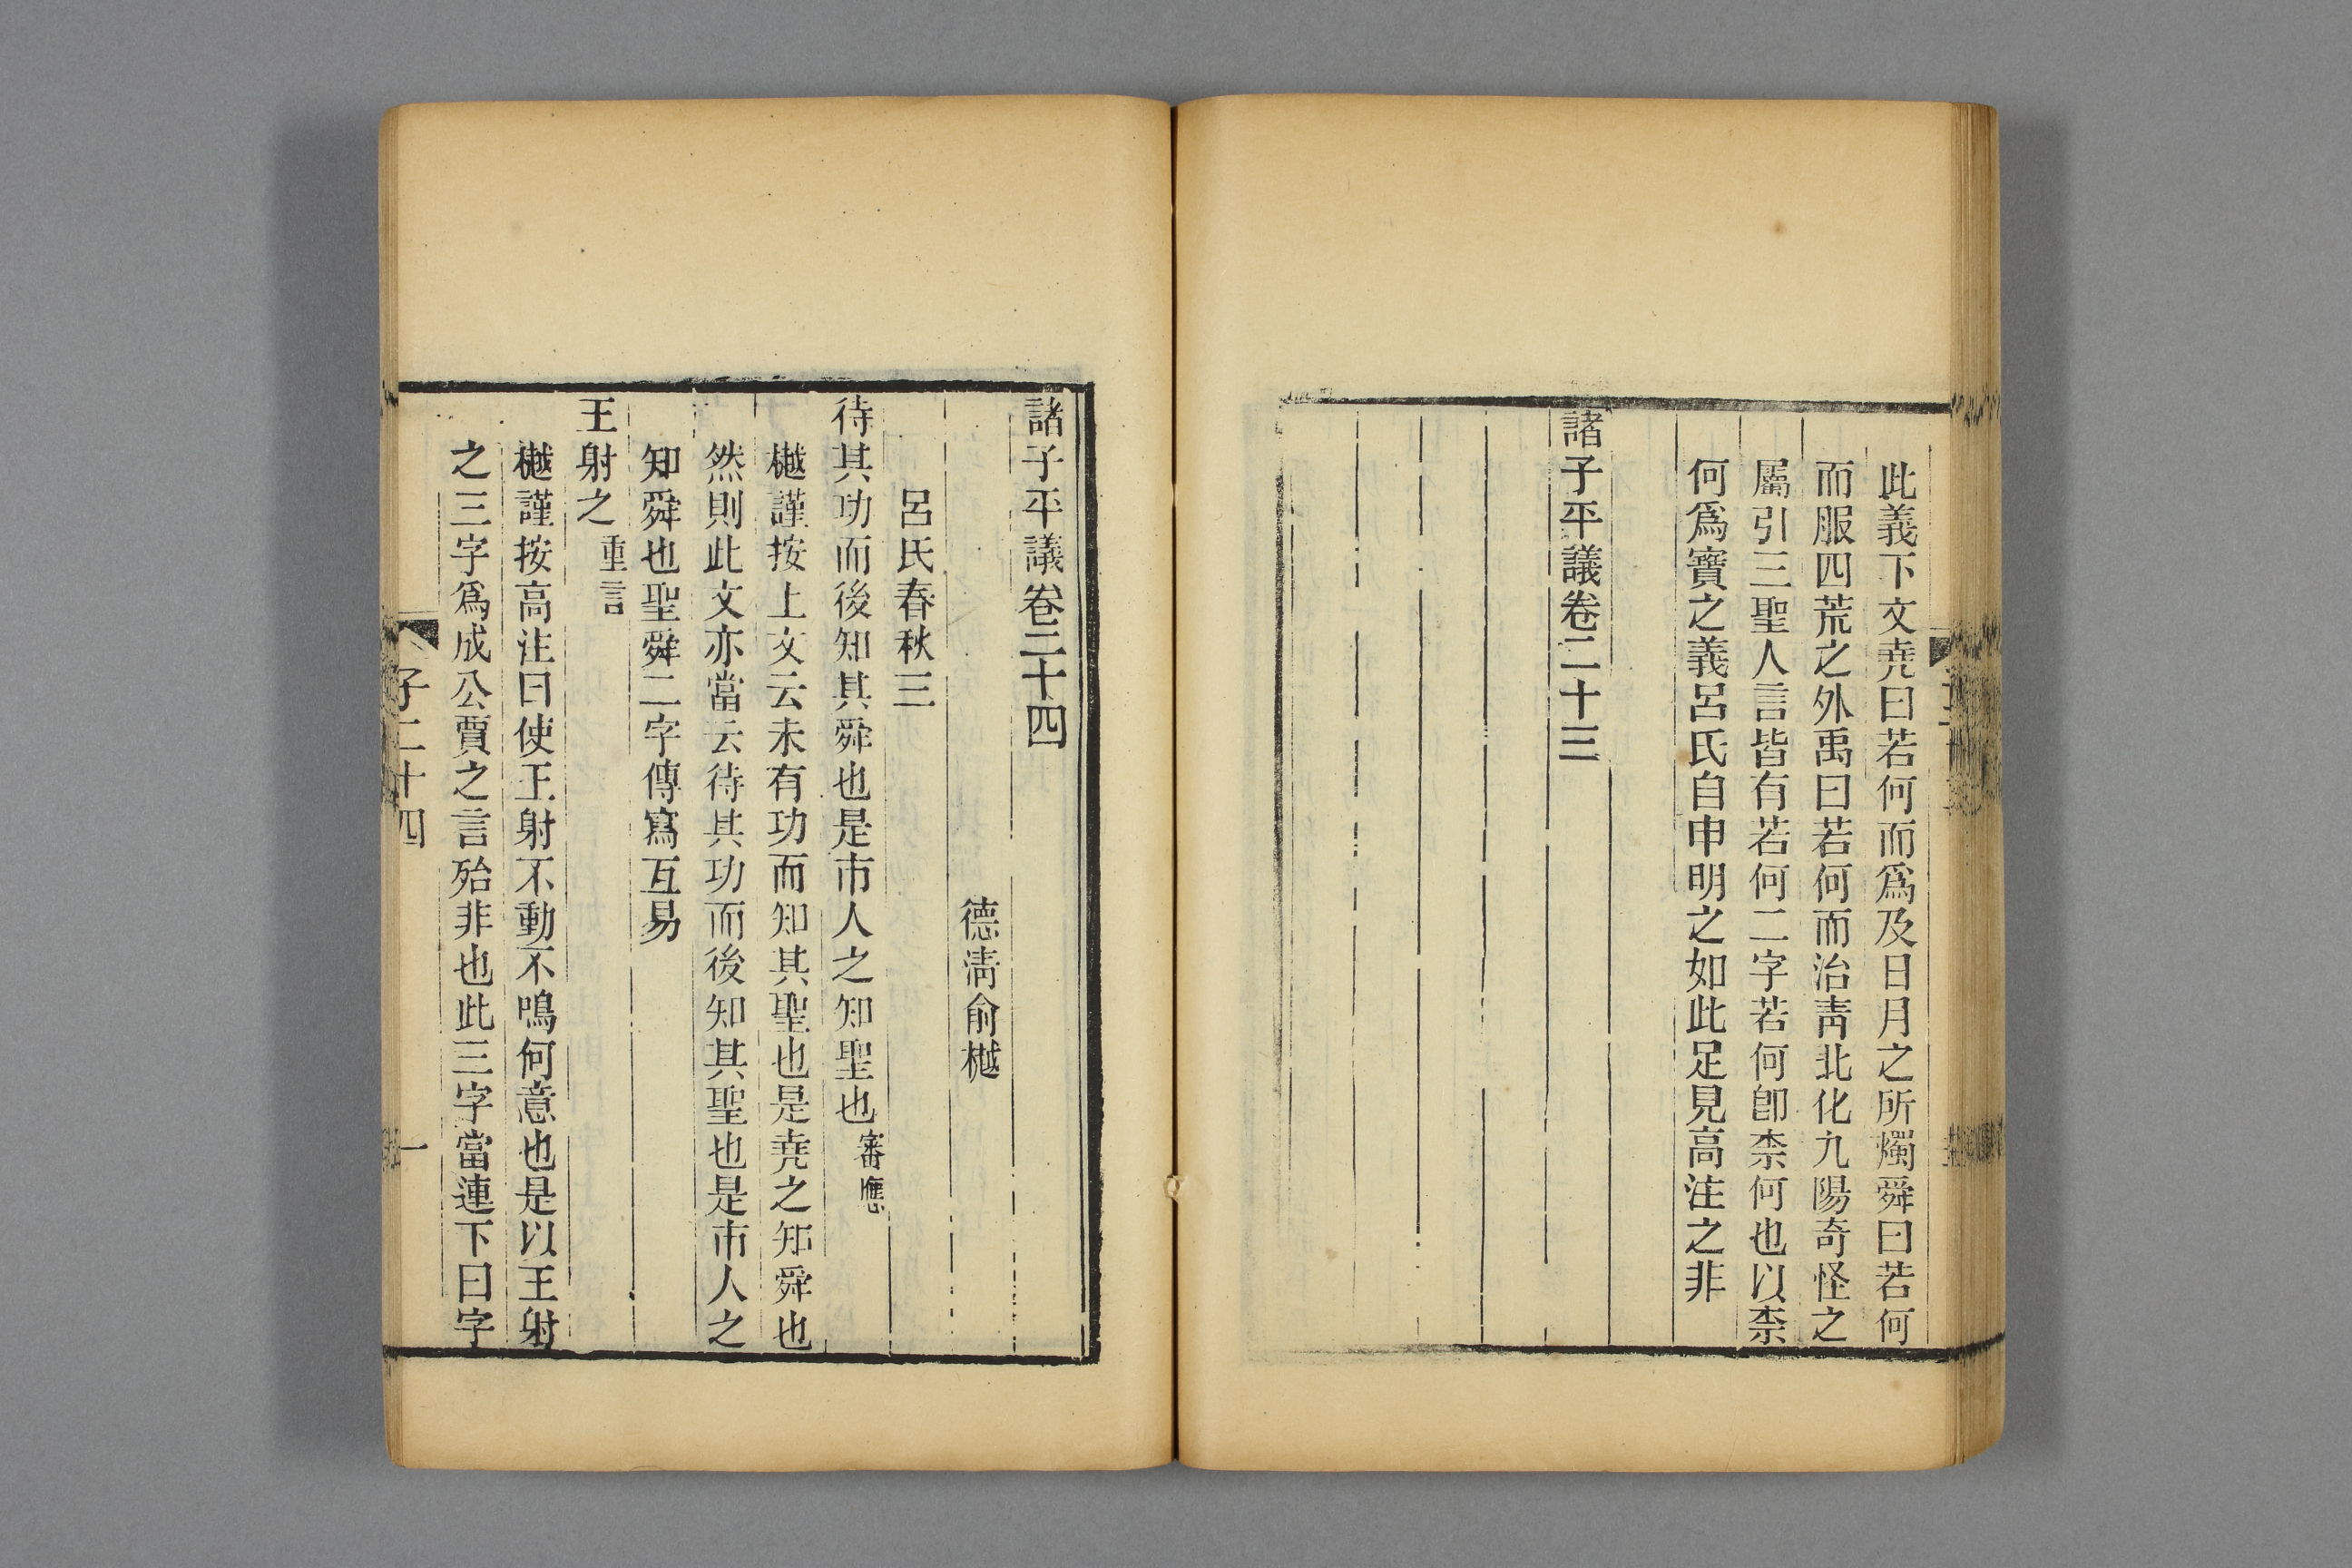 此義下文堯曰若何而爲及日月之所燭舜曰若何
而服四荒之外禹曰若何而治靑北化九陽奇怪之
屬引三聖人言皆有若何二字若何卽柰何也以柰
何爲寶之義呂氏自申明之如此足見高注之非
諸子平議卷二十三
諸子平議卷二十四
德淸俞樾
呂氏春秋三
待其功而後知其舜也是市人之知聖也審應
樾謹按上文云未有功而知其聖也是堯之知舜也
然則此文亦當云待其功而後知其聖也是市人之
知舜也聖舜二字傳寫互易
王射之重言
樾謹按高注曰使王射不動不鳴何意也是以王射
之三字爲成公賈之言殆非也此三字當連下曰字
子二十四
一